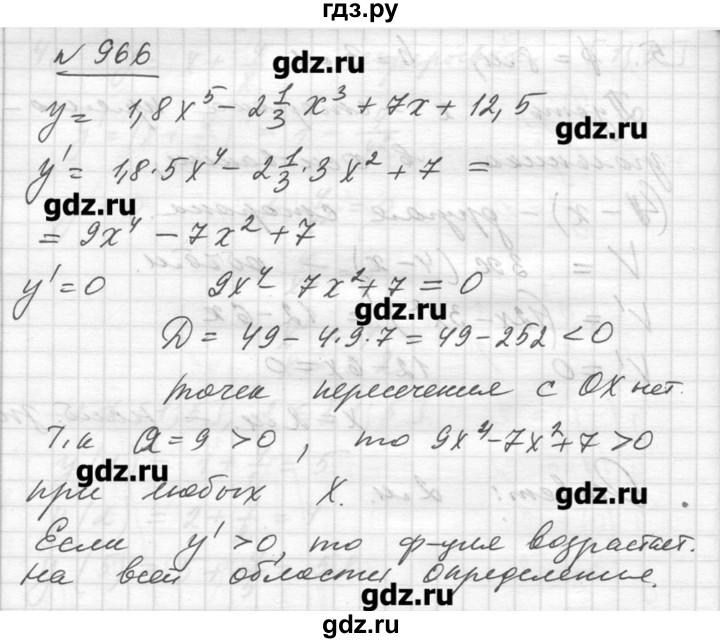 гдз.ру
№ 966
gdz.ru
y = 1,8x⁵ - 2 1/3 x³ + 7x + 12,5
gdz.ru
y' = 1,8·5x⁴ - 2 1/3·3x² + 7 =
gdz.ru
= 9x⁴ - 7x² + 7
y' = 0 9x⁴ - 7x² + 7 = 0
gdz.ru
D = 49 - 4·9·7 = 49 - 252 < 0
точек пересечения с OX нет.
Т.к a = 9 > 0, то 9x⁴ - 7x² + 7 > 0
gdz.ru
при любых X.
gdz.ru
Если y' > 0, то ф-ция возрастает.
на всей области определение.
gdz.ru
гдз.ру